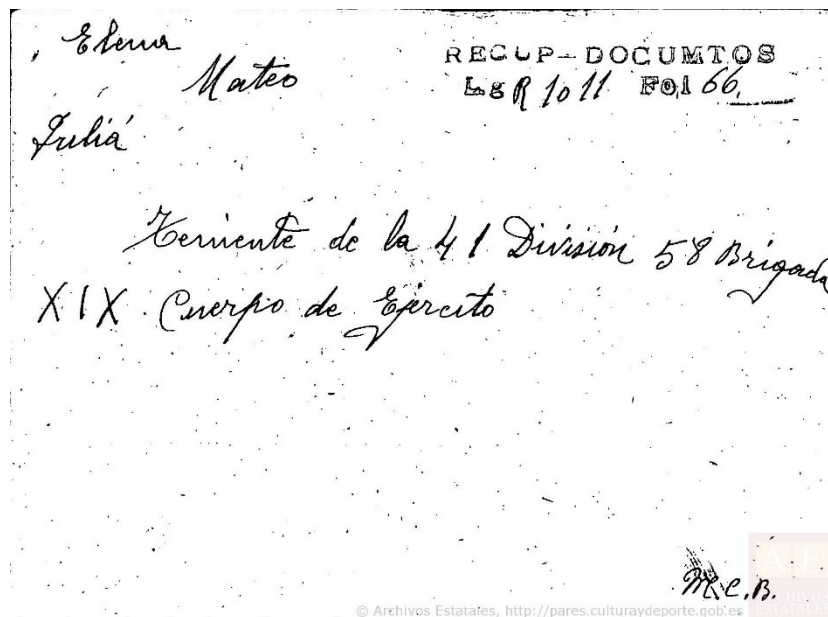 Elena
Mateo
Juliá
RECUP-DOCUMTOS
Lg R 1011 Fol 66,
Teniente de la 41 División 58 Brigada
XIX Cuerpo de Ejército
M.C.B.
© Archivos Estatales, http://pares.culturaydeporte.gob.es
AE
ARCHIVOS
ESTATALES